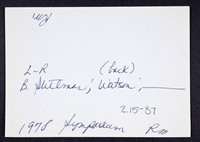 L-R (back)
B. Stillman; Watson;
2-15-37
1978 Symposium Rm